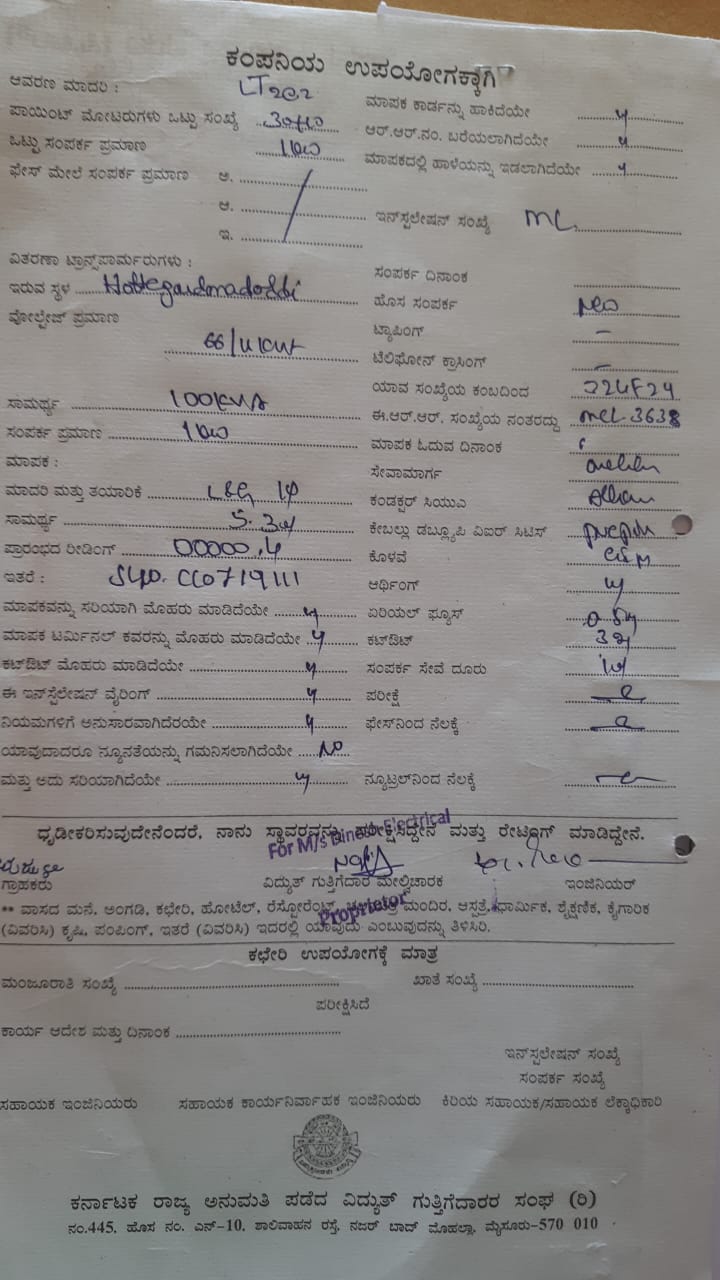 ಕಂಪನಿಯ ಉಪಯೋಗಕ್ಕಾಗಿ
ಆವರಣ ಮಾದರಿ : LT2C2
ಮಾಪಕ ಕಾರ್ಡನ್ನು ಹಾಕಿದೆಯೇ y
ಪಾಯಿಂಟ್ ಮೋಟರುಗಳು ಒಟ್ಟು ಸಂಖ್ಯೆ
ಆರ್.ಆರ್.ನಂ. ಬರೆಯಲಾಗಿದೆಯೇ y
ಒಟ್ಟು ಸಂಪರ್ಕ ಪ್ರಮಾಣ 1kw
ಮಾಪಕದಲ್ಲಿ ಹಾಳೆಯನ್ನು ಇಡಲಾಗಿದೆಯೇ y
ಫೇಸ್ ಮೇಲೆ ಸಂಪರ್ಕ ಪ್ರಮಾಣ ಅ.
ಆ.
ಇ.
ಇನ್‌ಸ್ಪಲೇಷನ್ ಸಂಖ್ಯೆ MCL
ವಿತರಣಾ ಟ್ರಾನ್ಸ್‌ಪಾರ್ಮರುಗಳು :
ಸಂಪರ್ಕ ದಿನಾಂಕ
ಇರುವ ಸ್ಥಳ
ಹೊಸ ಸಂಪರ್ಕ New
ವೋಲ್ಟೇಜ್ ಪ್ರಮಾಣ 66/11KW
ಟ್ಯಾಪಿಂಗ್ –
ಟೆಲಿಫೋನ್ ಕ್ರಾಸಿಂಗ್ –
ಯಾವ ಸಂಖ್ಯೆಯ ಕಂಬದಿಂದ
ಸಾಮರ್ಥ್ಯ 100KVA
ಈ.ಆರ್.ಆರ್. ಸಂಖ್ಯೆಯ ನಂತರದ್ದು MCL-3638
ಸಂಪರ್ಕ ಪ್ರಮಾಣ 1kw
ಮಾಪಕ ಓದುವ ದಿನಾಂಕ
ಮಾಪಕ :
ಸೇವಾಮಾರ್ಗ
ಮಾದರಿ ಮತ್ತು ತಯಾರಿಕೆ L&G 1φ
ಕಂಡಕ್ಟರ್ ಸಿಯುಎ
ಸಾಮರ್ಥ್ಯ
ಕೇಬಲ್ಲು ಡಬ್ಲ್ಯೂಪಿ ವಿಐರ್ ಸಿಟಿಸ್
ಪ್ರಾರಂಭದ ರೀಡಿಂಗ್ 00000.4
ಕೊಳವೆ
ಇತರೆ : CC0719111
ಆರ್ಥಿಂಗ್ y
ಮಾಪಕವನ್ನು ಸರಿಯಾಗಿ ಮೊಹರು ಮಾಡಿದೆಯೇ y
ಏರಿಯಲ್ ಫ್ಯೂಸ್
ಮಾಪಕ ಟರ್ಮಿನಲ್ ಕವರನ್ನು ಮೊಹರು ಮಾಡಿದೆಯೇ y
ಕಟ್‌ಔಟ್
ಕಟ್‌ಔಟ್ ಮೊಹರು ಮಾಡಿದೆಯೇ y
ಸಂಪರ್ಕ ಸೇವೆ ದೂರು
ಈ ಇನ್‌ಸ್ಪೆಲೇಷನ್ ವೈರಿಂಗ್ y
ಪರೀಕ್ಷೆ
ನಿಯಮಗಳಿಗೆ ಅನುಸಾರವಾಗಿದೆರಯೇ y
ಫೇಸ್‌ನಿಂದ ನೆಲಕ್ಕೆ
ಯಾವುದಾದರೂ ನ್ಯೂನತೆಯನ್ನು ಗಮನಿಸಲಾಗಿದೆಯೇ No
ಮತ್ತು ಅದು ಸರಿಯಾಗಿದೆಯೇ y
ನ್ಯೂಟ್ರಲ್‌ನಿಂದ ನೆಲಕ್ಕೆ
ಧೃಡೀಕರಿಸುವುದೇನೆಂದರೆ, ನಾನು ಸ್ಥಾವರವನ್ನು ಪರೀಕ್ಷಿಸಿದ್ದೇನೆ ಮತ್ತು ರೇಟಿಂಗ್ ಮಾಡಿದ್ದೇನೆ.
For M/s Dinesh Electrical
ಗ್ರಾಹಕರು ವಿದ್ಯುತ್ ಗುತ್ತಿಗೆದಾರ ಮೇಲ್ವಿಚಾರಕ ಇಂಜಿನಿಯರ್
Proprietor
** ವಾಸದ ಮನೆ, ಅಂಗಡಿ, ಕಛೇರಿ, ಹೋಟೆಲ್, ರೆಸ್ಟೋರೆಂಟ್, ಮಂದಿರ, ಆಸ್ಪತ್ರೆ, ಧಾರ್ಮಿಕ, ಶೈಕ್ಷಣಿಕ, ಕೈಗಾರಿಕ
(ವಿವರಿಸಿ) ಕೃಷಿ, ಪಂಪಿಂಗ್, ಇತರೆ (ವಿವರಿಸಿ) ಇದರಲ್ಲಿ ಯಾವುದು ಎಂಬುವುದನ್ನು ತಿಳಿಸಿರಿ.
ಕಛೇರಿ ಉಪಯೋಗಕ್ಕೆ ಮಾತ್ರ
ಮಂಜೂರಾತಿ ಸಂಖ್ಯೆ ಖಾತೆ ಸಂಖ್ಯೆ
ಪರೀಕ್ಷಿಸಿದೆ
ಕಾರ್ಯ ಆದೇಶ ಮತ್ತು ದಿನಾಂಕ
ಇನ್‌ಸ್ಪಲೇಷನ್ ಸಂಖ್ಯೆ
ಸಂಪರ್ಕ ಸಂಖ್ಯೆ
ಸಹಾಯಕ ಇಂಜಿನಿಯರು ಸಹಾಯಕ ಕಾರ್ಯನಿರ್ವಾಹಕ ಇಂಜಿನಿಯರು ಕಿರಿಯ ಸಹಾಯಕ/ಸಹಾಯಕ ಲೆಕ್ಕಾಧಿಕಾರಿ
ಕರ್ನಾಟಕ ರಾಜ್ಯ ಅನುಮತಿ ಪಡೆದ ವಿದ್ಯುತ್ ಗುತ್ತಿಗೆದಾರರ ಸಂಘ (ರಿ)
ನಂ.445, ಹೊಸ ನಂ. ಎನ್-10, ಶಾಲಿವಾಹನ ರಸ್ತೆ, ನಜರ್ ಬಾದ್ ಮೊಹಲ್ಲಾ, ಮೈಸೂರು-570 010